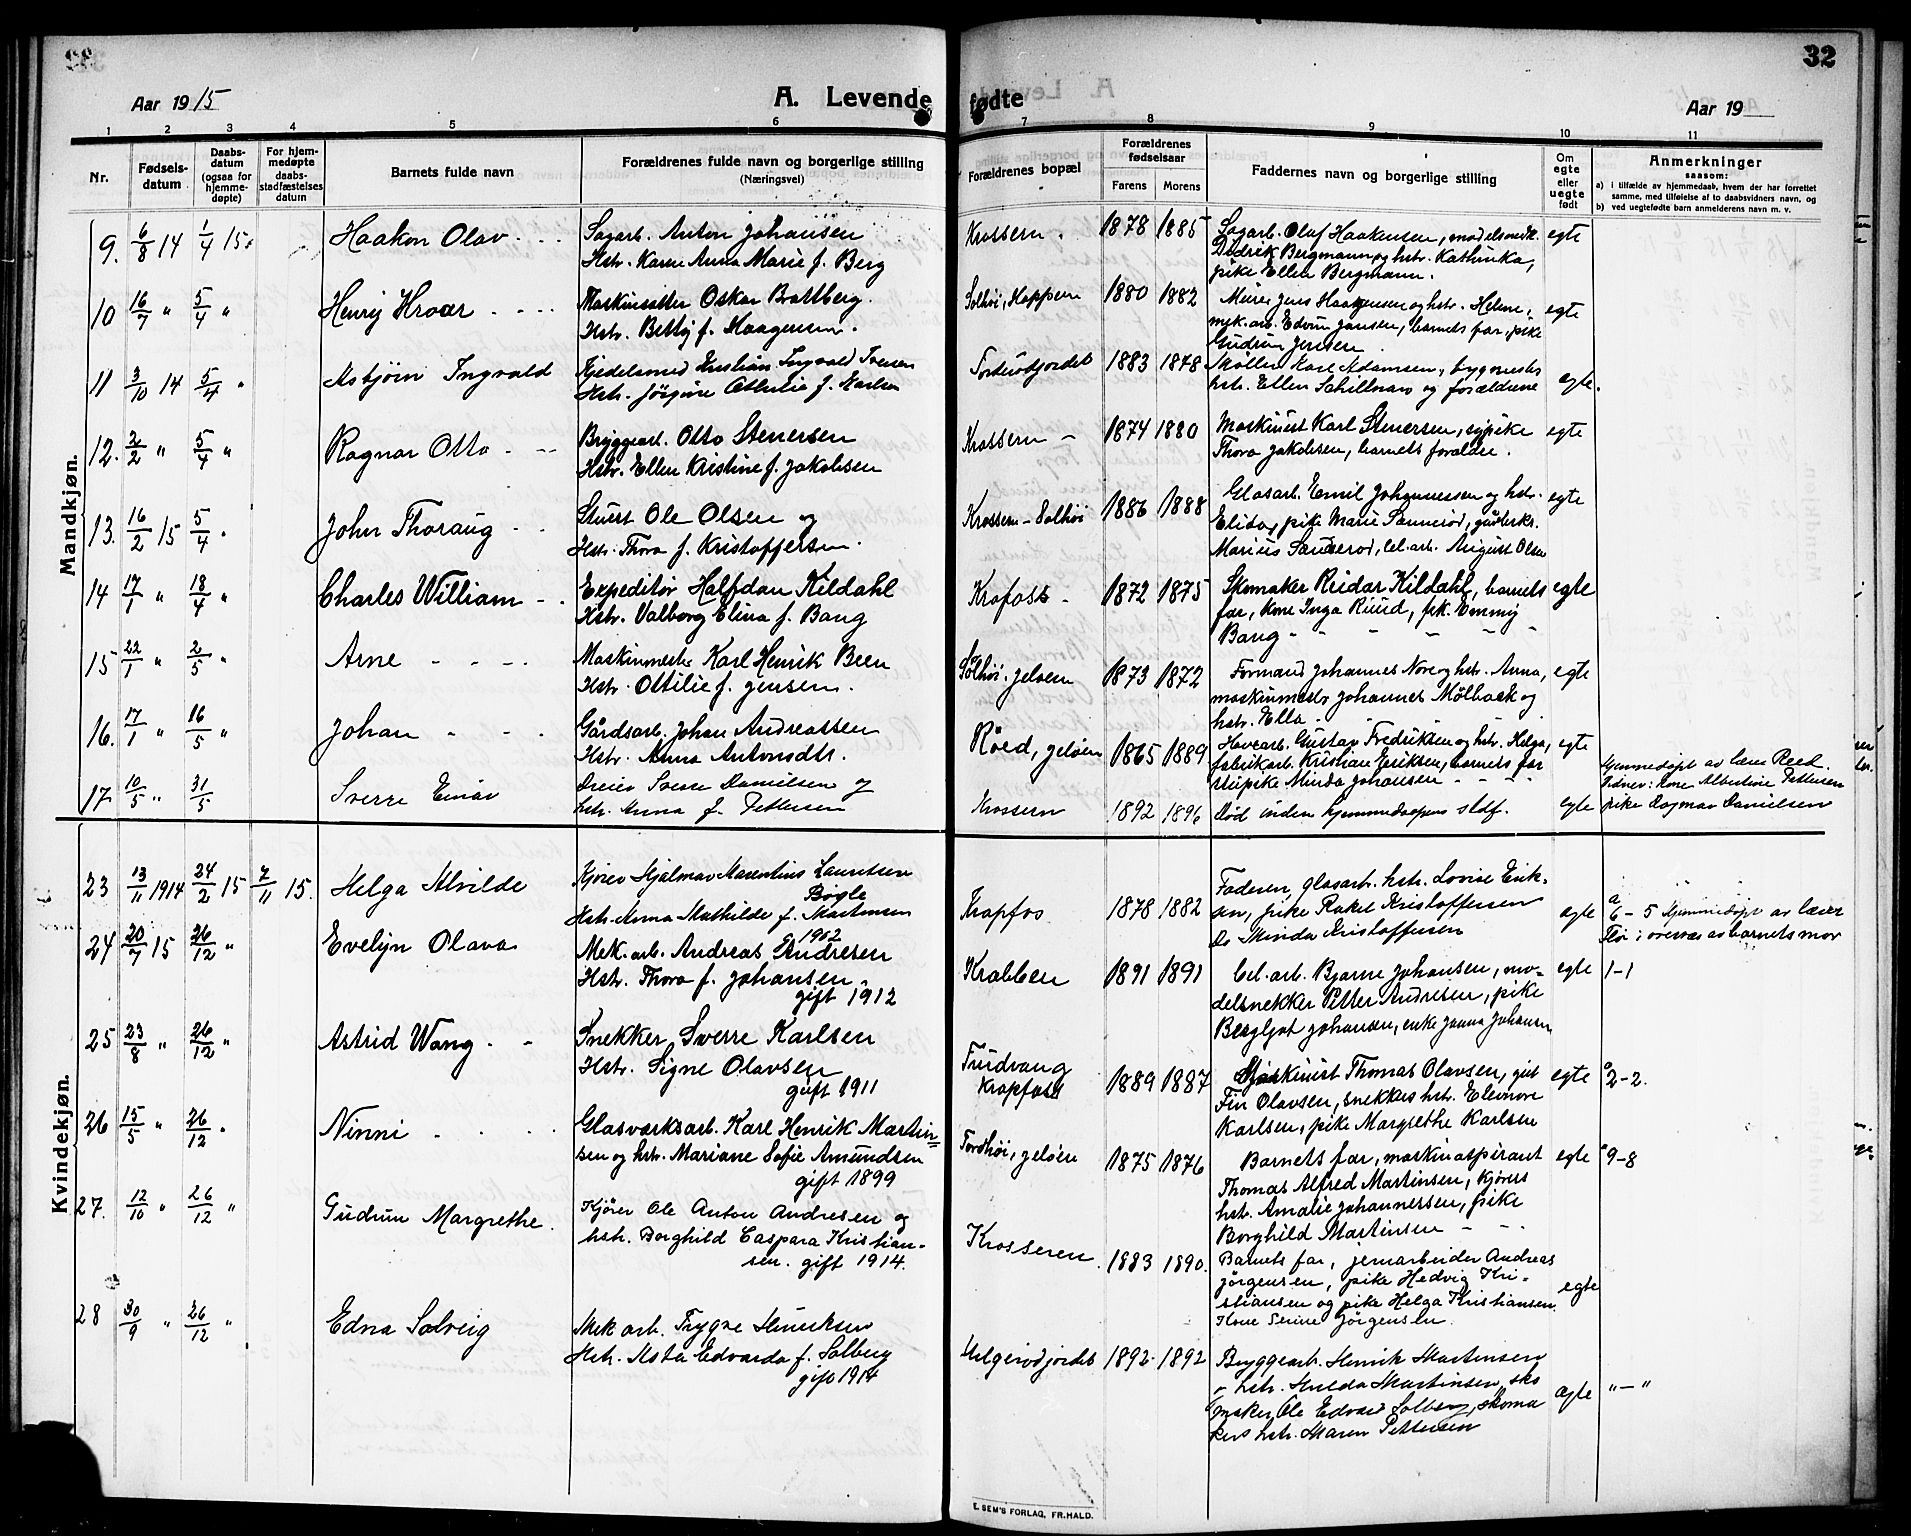 32
Aar 1915
A. Levende fødte
Aar 19
1 2 3 4 5 6 7 8 9 10 11
Nr.
Fødsels-
datum
Daabs-
datum
(ogsaa for
hjemme-
døpte)
For hjem-
medøpte
daabs-
stadfæstelses
datum
Barnets fulde navn
Forældrenes fulde navn og borgerlige stilling
(Næringsvei)
Forældrenes bopæl
Forældrenes
fødselsaar
Farens Morens
Faddernes navn og borgerlige stilling
Om
egte
eller
uegte
født
Anmerkninger
saasom:
a) i tilfælde av hjemmedaab, hvem der har forrettet
samme, med tilføielse af to daabsvidners navn, og
b) ved uegtefødte barn anmelderens navn m. v.
Mandkjøn.
9. 6/8 14 1/4 15. Haakon Olav
Sagarb. Anton Johansen
Hstr. Karen Anna Marie f. Berg
Krossern. 1878 1885
Sagarb. Olaf Haakensen, modelsnedk.
Didrik Bergmann og hstr. Kathinka,
pike Ellen Bergmann.
egte
10 16/7 " 5/4 " Henry Hroar
Maskinsetter Oskar Brattberg.
Hstr. Betty f. Haagensen.
Solhøi, Hoppern 1880 1882
Murer Jens Haagensen og hstr. Helene,
mek. arb. Edvin Jansen, barnets far, pike
Gudrun Jensen
egte
11 3/10 14 5/4 " Asbjørn Ingvald
Kjedelsmed Kristian Ingvald Iversen
Hstr. Jørgine Othilie f. Karlsen
1883 1878
Møller Karl Adamsen, bygmester
hstr. Ellen og forældrene
egte.
12. 2/2 " 5/4 " Ragnar Otto
Bryggearb. Otto Stenersen
Hstr. Ellen Kristine f. Jakobsen
Krossern - 1874 1880
Maskinist Karl Stenersen, sypike
Thora Jakobsen, barnets forældre.
egte
13. 16/2 15 5/4 " John Thoraug
Stuert Ole Olsen og
Hstr. Thora f. Kristoffersen.
Krossern - Solhøi 1886 1888
Glasarb. Emil Johannessen og hstr.
Elida, pike Marie Sannerød,
Marius Sannerød, cel. arb. August Olsen
egte
14 17/1 " 18/4 " Charles William
Expeditør Halfdan Kildahl
Hstr. Valborg Elina f. Bang
Krapfoss - 1872 1875
Skomaker Reidar Kildahl, barnets
far, kone Inga Ruud, pik. Emmy
Bang
egte
15 22/1 " 2/5 " Arne
Maskinmester Karl Henrik Been
Hstr. Ottilie f. Jensen.
Solhøi, Jeløen 1873 1872
Formand Johannes Nore og hstr. Anna,
maskinmestr Johannes Mølback og
hstr. Ella.
egte
16. 17/1 " 16/5 " Johan
Gårdsarb. Johan Andreassen
Hstr. Anna Antonsdtr.
Røed, Jeløen 1865 1889
Havearb. Gustav Fredriksen og hstr. Helga,
fabrikarb. Kristian Eriksen, barnets far
pike Minda Johansen
egte
17. 10/5 " 31/5 Sverre Einar
Dreier Sverre Danielsen og
hstr. Anna f. Pettersen
Krossern 1892 1896
Død inden hjemmedaapens stdf.
egte
Hjemmedøpt av læge Reed.
Vidner: Kone Albertine Pettersen
pike Dagmar Danielsen
Kvindekjøn.
23 13/11 1914 24/2 15 7/11 15. Helga Alvilde
Kjører Hjalmar Marentius Lauritsen
Bøgle
Hstr. Anna Mathilde f. Martinsen
1902
Krapfos 1878 1882
Faderen, glasarb. hstr. Lovise Erik-
sen, pike Rakel Kristoffersen
Do Minda Kristoffersen
egte
a
6-5 Hjemmedøpt av læge
overvær av barnets mor
24 20/7 15 26/12 " Evelyn Olava
Mek. arb. Andreas Andresen
Hstr. Thora f. Johansen.
gift 1912
Krabben 1891 1891
Cel. arb. Bjarne Johansen, mo-
delsnekker Petter Andresen, pike
Bergljot Johansen, enke Janna Johansen
egte 1-1
25 23/8 " 26/12 " Astrid Wang
Snekker Sverre Karlsen
Hstr. Signe Olavsen
gift 1911
Trudvang
Krapfoss 1889 1887
Maskinist Thomas Olavsen, gut
Fin Olavsen, snekkers hstr. Eleonore
Karlsen, pike Margrethe Karlsen
egte 2-2.
26 15/5 " 26/12 " Ninni
Glasværksarb. Karl Henrik Martin-
sen og hstr. Mariane Sofie Amundsen
gift 1899
Jeløen 1875 1876
Barnets far, maskinaspirant
Thomas Alfred Martinsen, kjørers
hst. Amalie Johannessen, pike
Borghild Martinsen
egte 9-8
27. 12/10 " 26/12 " Gudrun Margrethe.
Kjører Ole Anton Andresen og
hstr. Borghild Caspara Kristian-
sen. gift 1914.
Krosseren 1883 1890.
Barnets far, jernarbeider Andreas
Jørgensen, pike Hedvig Kri-
stiansen og pike Helga Kristiansen
Kone Serine Jørgensen.
egte
28 30/9 " 26/12 " Edna Solveig
Mek arb. Trygve Henriksen
Hstr. Asta Edvarda f. Solberg
gift 1914
Helgerødjordet 1892 1892
Bryggearb. Henrik Martinsen
- hstr. Hulda Martinsen, sko
maker Ole Edvard Solberg, skoma
kers hstr. Maren Pettersen
egte "-"
E. SEM'S FORLAG, FR.HALD.